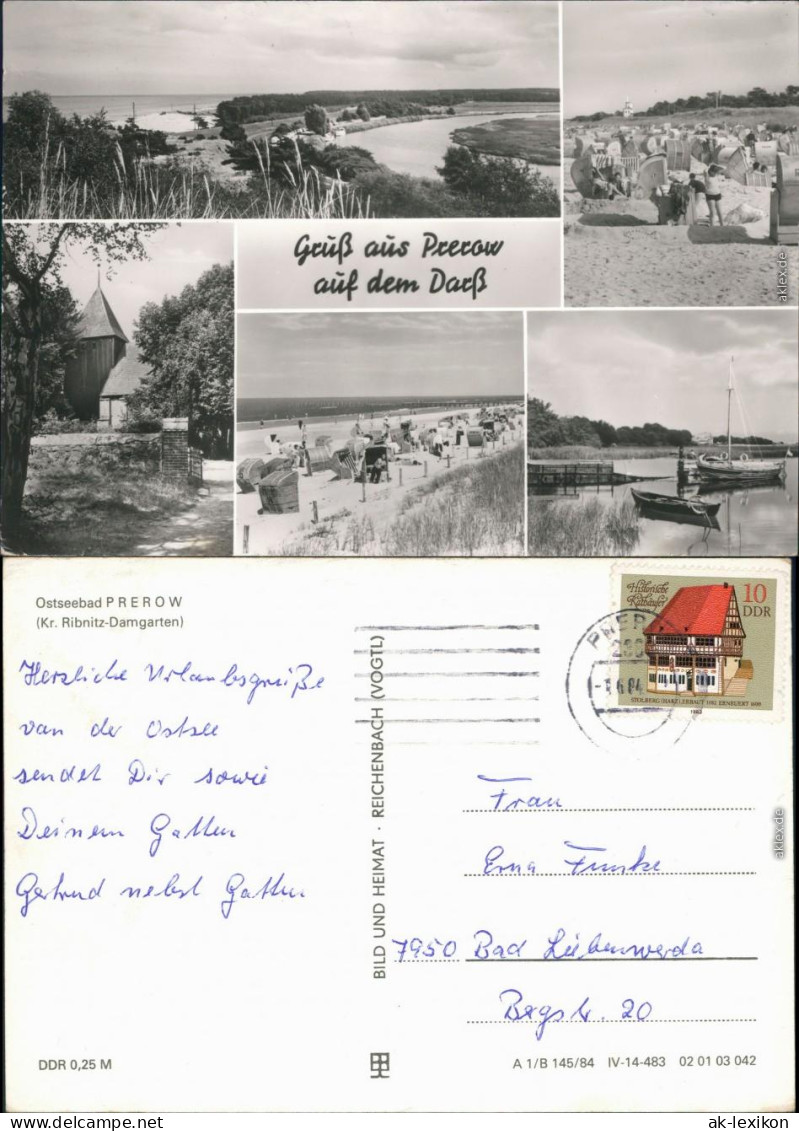 Gruß aus Prerow
auf dem Darß
aklex.de
Ostseebad PREROW
(Kr. Ribnitz-Damgarten)
Herzliche Urlaubsgrüße
van der Ostsee
sendet Dir sowie
Deinem Gatten
Gertrud nebst Gatten
DDR 0,25 M
BILD UND HEIMAT · REICHENBACH (VOGTL)
Historische
Rathäuser
10
DDR
STOLBERG (HARZ) ERBAUT 1482, ERNEUERT 1600
1983
Frau
Erna Funke
7950 Bad Liebenwerda
Bergstr. 20
A 1/B 145/84 IV-14-483 02 01 03 042
aklex.de
www.delcampe.net
ak-lexikon